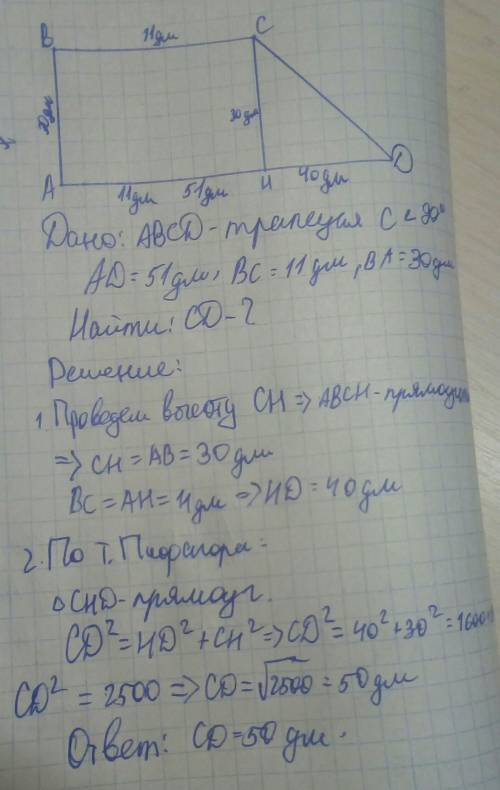 B 11дм C
30дм 30дм
A 11дм 51дм H 40дм D
Дано: ABCD - трапеция C < 90°
AD = 51дм, BC = 11дм, BA = 30дм
Найти: CD - ?
Решение:
1. Проведем высоту CH => ABCH - прямоуг
=> CH = AB = 30дм
BC = AH = 11дм => HD = 40дм
2. По т. Пифагора:
△CHD - прямоуг.
CD² = HD² + CH² => CD² = 40² + 30² = 1600+
CD² = 2500 => CD = √2500 = 50дм
Ответ: CD = 50 дм.